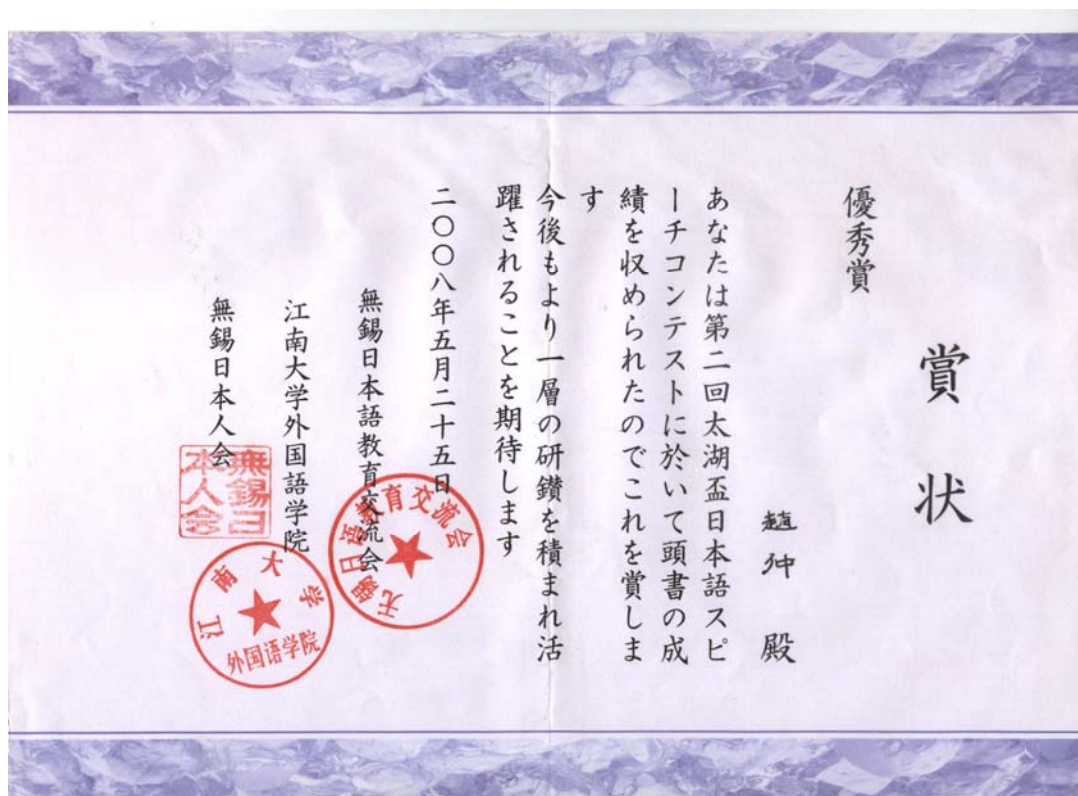 賞状
優秀賞
趙冲 殿
あなたは第二回太湖盃日本語スピ
ーチコンテストに於いて頭書の成
績を収められたのでこれを賞しま
す
今後もより一層の研鑚を積まれ活
躍されることを期待します
二〇〇八年五月二十五日
無錫日本語教育交流会
江南大学外国語学院
無錫日本人会
无锡日语教育交流会
江南大学
外国语学院
無錫日
本人会